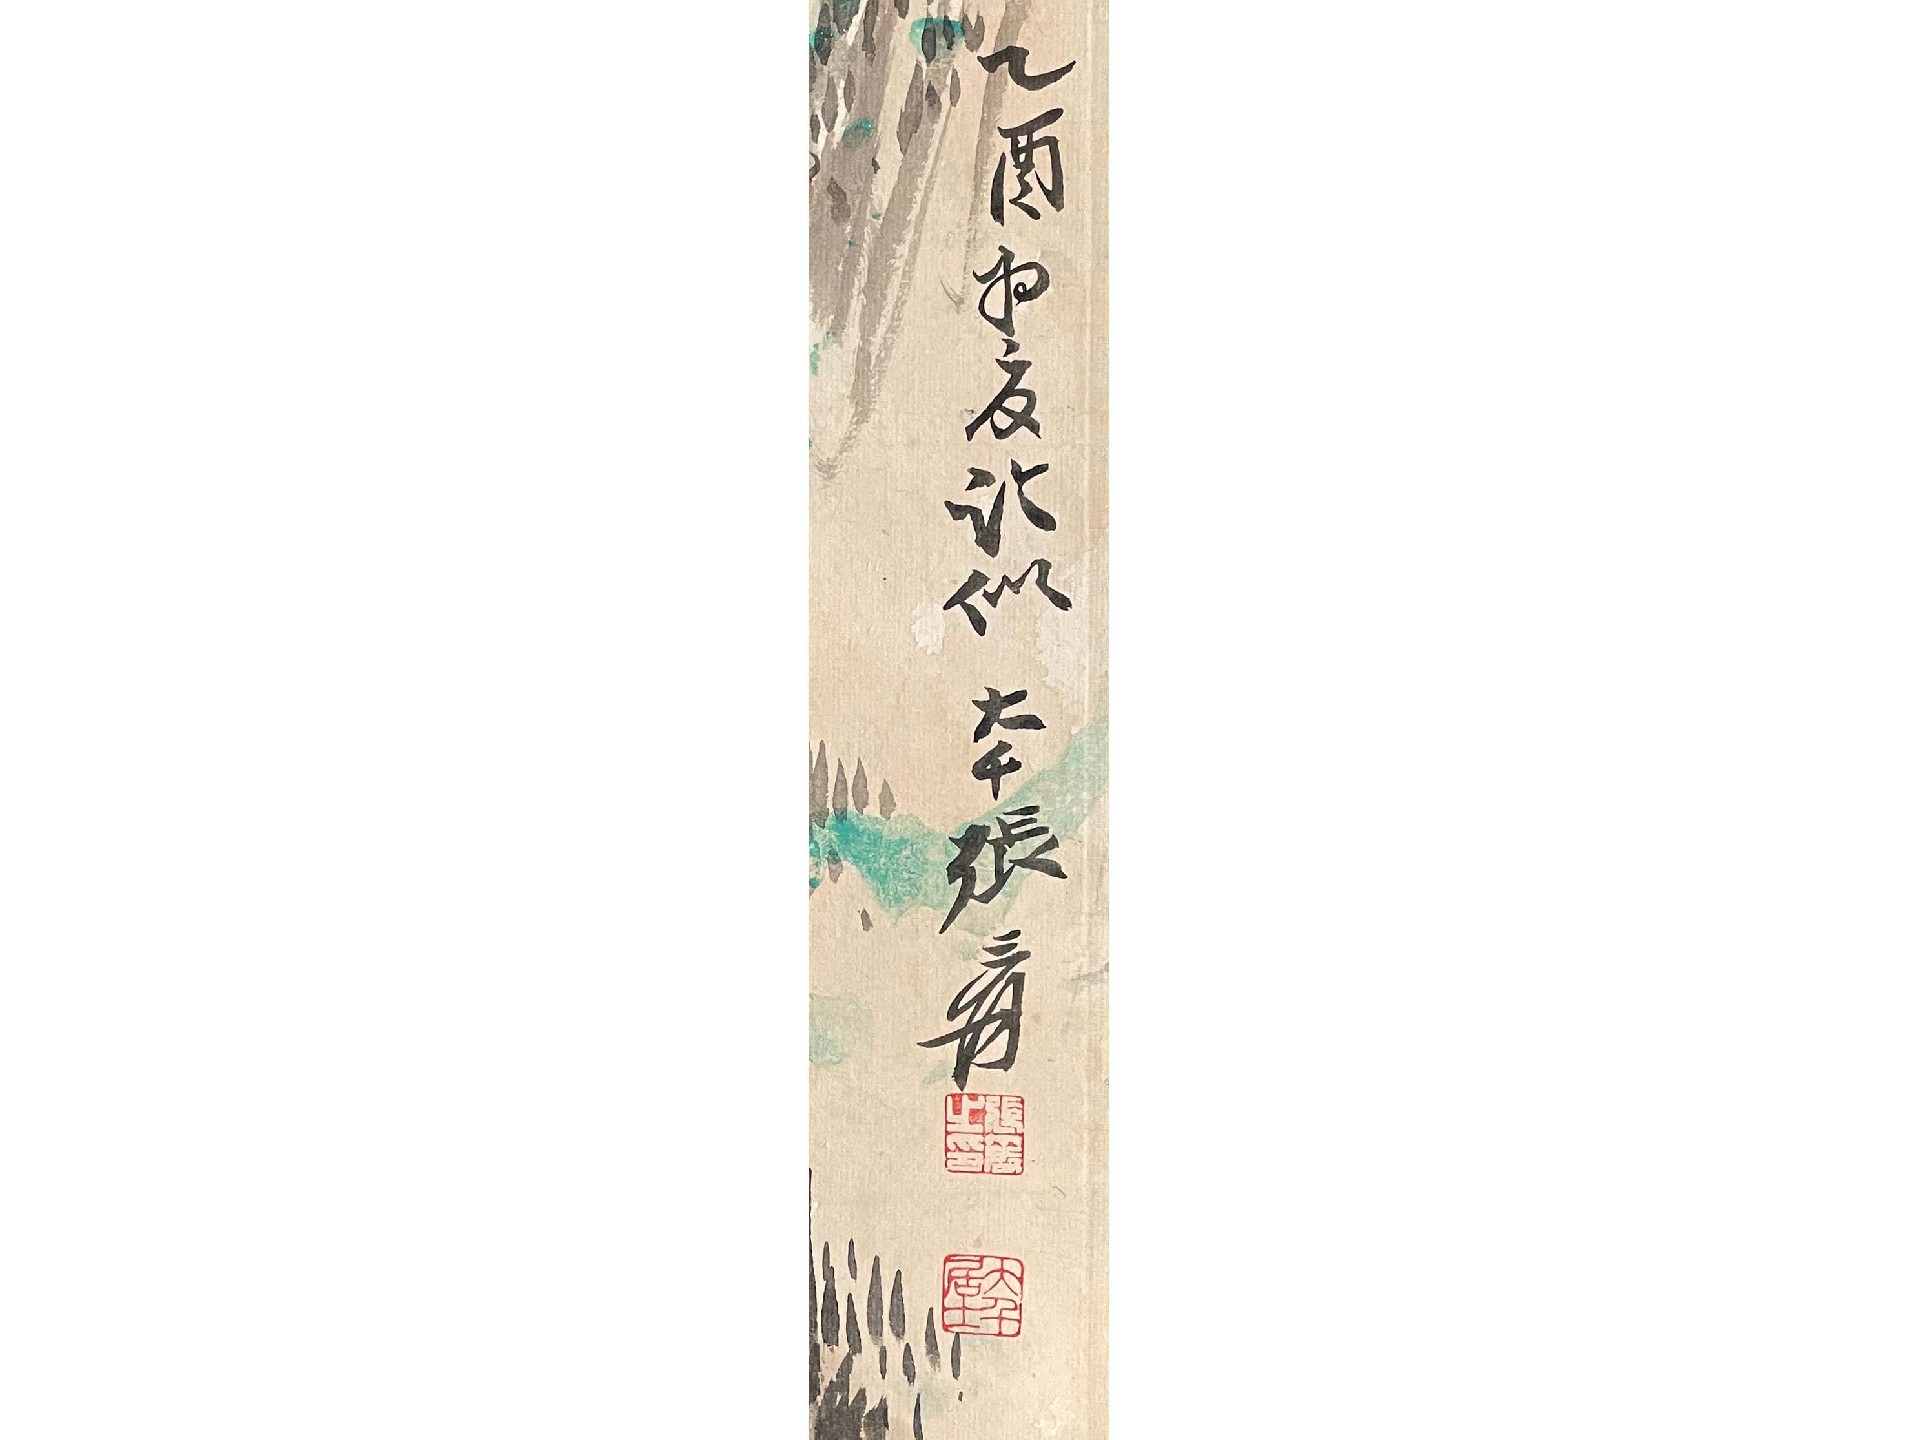 乙酉中夏似 大千張爰
張爰之印
大千居士